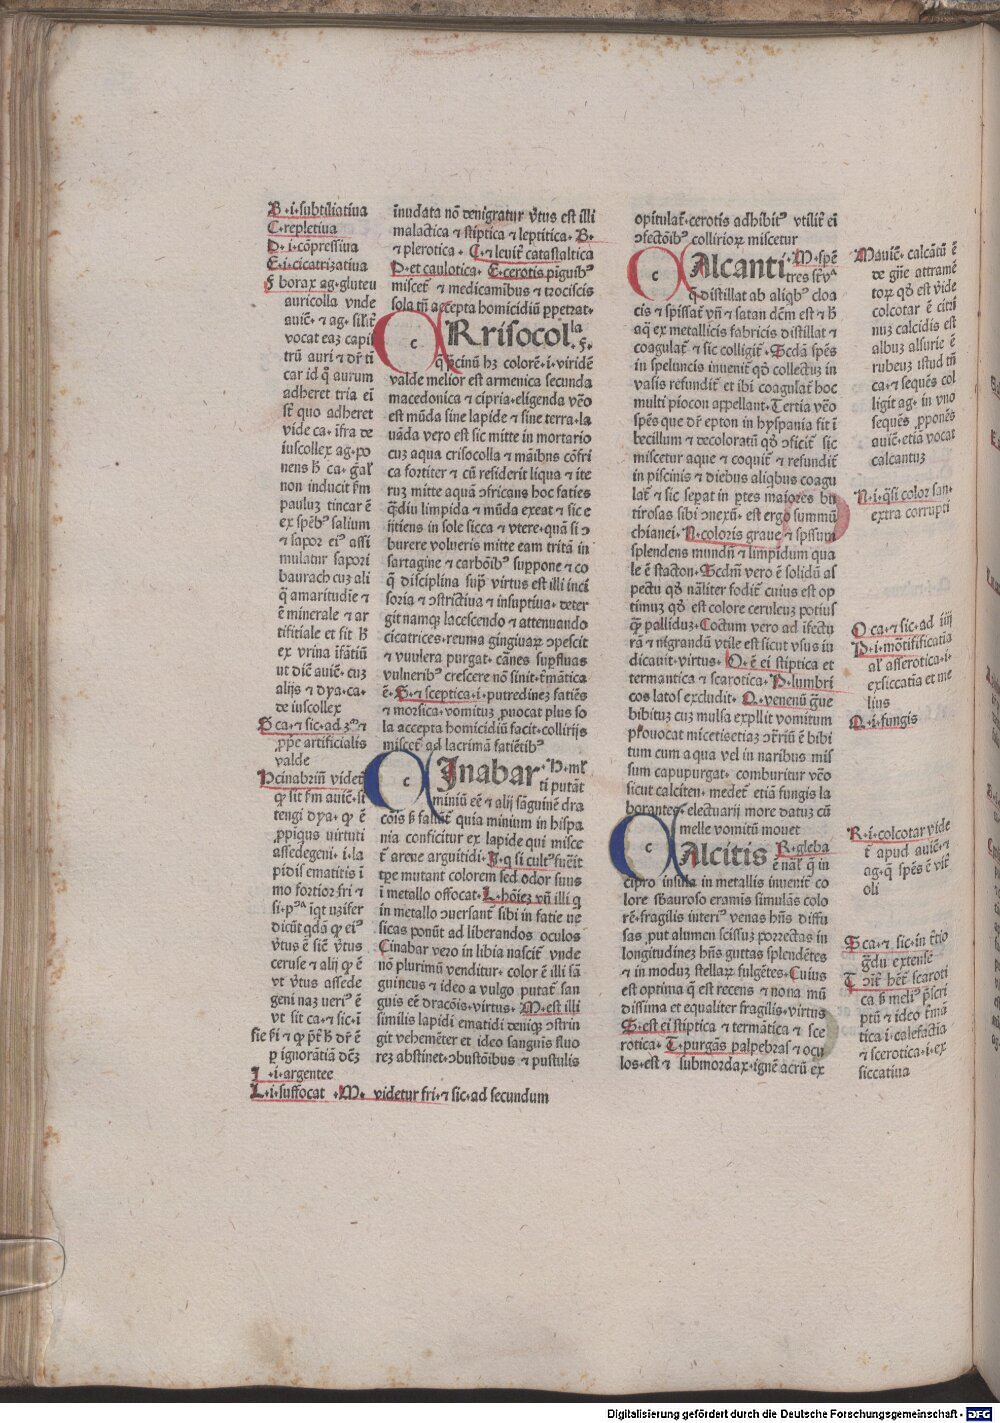 B·i·subtiliatiua
C·repletiua
D·i·cōpressiua
E·i·cicatrizatiua
F borax ag·gluteu
auricolla vnde
auiē· ⁊ ag· silīt
vocat eaꝫ capi
trū auri ⁊ dr̄ tī
car id q̄ aurum
adheret tria ei
st̄ quo adheret
vide ca· īfra de
iuscollex ag·po
nens h̄ ca· gāl
non inducit ẜm
pauluꝫ tincar ē
ex spēbꝰ salium
⁊ sapor eiꝰ assi
mulatur sapori
baurach cuꝫ ali
q̄ amaritudīe ⁊
ē minerale ⁊ ar
tifitiale et fit h̄
ex vrina īfātiū
ut dīc auic̄· cuꝫ
alijs ⁊ dya·ca·
de iuscollex
G ca·⁊ sic·ad ⁊
pp̄e artificialis
valde
H cinabriū videt̄
ꝙ sit ẜm auic̄·st
tengi dya· ꝙ ē
ꝓpiqus uirtuti
assedegeni·i·la
pidis ematitis ī
mo fortior fri ⁊
si·pᵃ īqt uzifer
dicūt qdā ꝙ eiꝰ
v̄tus ē sic̄ v̄tus
ceruse ⁊ alij ꝙ ē
vt v̄tus assede
geni naꝫ veriꝰ ē
vt sit ca·⁊ sic·ī
sic fi ⁊ ꝙ pt̄ h̄ dr̄ ē
ꝑ ignorātiā dc̄ꝫ
I·i·argentee
L·i·suffocat ·M· videtur fri·⁊ sic·ad secundum
īnudata nō denigratur v̄tus est illi
malactica ⁊ stiptica ⁊ leptitica· B·
⁊ plerotica· C·⁊ leuit̄ catastaltica
D·et caulotica· E·cerotis piguibꝰ
miscet̄ ⁊ medicamībus ⁊ trociscis
sola tn̄ accepta homicidiū ppetrat·
CRrisocolla
·F·
q̄ pcinū hꝫ colorē·i·viridē
valde melior est armenica secunda
macedonica ⁊ cipria·eligenda vēo
est mūda sine lapide ⁊ sine terra·la
uāda vero est sic mitte in mortario
cuꝫ aqua crisocolla ⁊ māibus cōfri
ca fortiter ⁊ cū residerit liqua ⁊ ite
ruꝫ mitte aquā ɔfricans hoc faties
q̄diu limpida ⁊ mūda exeat ⁊ sic e
ijtiens in sole sicca ⁊ vtere·quā si ɔ
burere volueris mitte eam tritā in
sartagine ⁊ carbōibꝰ suppone ⁊ co
q̄ disciplina sup̄ virtus est illi inci
soria ⁊ ɔstrictiua ⁊ insuptiua· deter
git namqꝫ lacescendo ⁊ attenuando
cicatrices·reuma gingiuaꝝ ɔpescit
⁊ vulnera purgat· cānes supfluas
vulneribꝰ crescere nō sinit·t̄mātica
ē· G·⁊ sceptica·i·putredinez fatiēs
⁊ morsica·vomituꝫ ꝓuocat plus so
la accepta homicidiū facit·collirijs
miscet̄ ad lacrimā fatiētibꝰ
CInabar ·H·mł
ti putāt
miniū eē ⁊ alij sāguinē dra
cōis h̄ fallūt̄ quia minium in hispa
nia conficitur ex lapide qui misce
t̄ arene argutidi·I·q si cultꝰ fuēit
tp̄e mutant colorem sed odor suus
ī metallo offocat· L·hōiez vn̄ illi q
in metallo ɔuersant̄ sibi in fatie ve
sicas ponūt ad liberandos oculos
Cinabar vero in libia nascit̄ vnde
nō plurimū venditur·color ē illi sā
guineus ⁊ ideo a vulgo putat̄ san
guis eē dracōis·virtus· M·est illi
similis lapidi ematidi deniqꝫ ɔstrin
git vehemēter et ideo sanguis fluo
rez abstinet·ɔbustōibus ⁊ pustulis
opitulat̄·cerotis adhibitꝰ vtilīt̄ ei
ɔfectōibꝰ collirioꝝ miscetur
CAlcanti·M·spē
tres sr̄vᵃ
q̄·distillat ab aliqbꝰ cloa
cis ⁊ spissat̄ vn̄ ⁊ satan dc̄m est ⁊ h̄
aq̄ ex metallicis fabricis distillat ⁊
coagulat̄ ⁊ sic colligit̄· Scdā spēs
in speluncis inuenit̄ qō collectuꝫ in
vasis refundit̄ et ibi coagulat̄ hoc
multi piocon appellant·Tertia vēo
spēs que dr̄ epton in hyspania fit ī
becillum ⁊ decoloratū qō ɔficit̄ sic
miscetur aque ⁊ coquit̄ ⁊ refundit̄
in piscinis ⁊ diebus aliqbus coagu
lat̄ ⁊ sic sepat in ptes maiores bu
tirosas sibi ɔnexū· est ergo summū
chianei· N·coloris graue ⁊ spissum
splendens mundū ⁊ limpidum qua
le ē stacton· Scdm̄ vero ē solidū as
pectu qō nāliter fodit̄ cuius est op
timuꝫ qō est colore ceruleuꝫ potius
q̄ꝫ palliduꝫ·Coctum vero ad ifectu
rā ⁊ nigrandū vtile est sicut vsus iu
dicauit·virtus· O·ē ei stiptica et
termantica ⁊ scarotica· P·lumbri
cos latos excludit· Q·venenū gue
bibituꝫ cuꝫ mulsa expllit vomitum
prouocat micetisetiaꝫ ɔtrīū ē bibi
tum cum aqua vel in naribus mis
sum capupurgat· comburitur vēo
sicut calciten· medet̄ etiā fungis la
borantes·electuarij more datuꝫ cū
melle vomitū mouet
CAlcitis R·gleba
ē nal̄ q̄ in
cipro insula in metallis inuenit̄ co
lore sbauroso eramis simulās colo
rē·fragilis interiꝰ venas hn̄s diffu
sas ꝓut alumen scissuꝫ porrectas in
longitudinez hn̄s guttas splendētes
⁊ in moduꝫ stellaꝝ fulgētes·Cuius
est optima q̄ est recens ⁊ nona mū
dissima et equaliter fragilis·virtus
S·est ei stiptica ⁊ termātica ⁊ sce
rotica· T·purgās palpebras ⁊ ocu
los·est ⁊ submordax·ignē acrū ex
Mauic̄· calcātū ē
de gn̄e attramē
toꝝ qō est v̄ide
colcotar ē citri
nuꝫ calcidis est
albuꝫ alsurie ē
rubeuꝫ istud tn̄
ca·⁊ sequēs col
ligit ag· in vno
sequēs pponēs
auic̄·etiā vocat
calcantuꝫ
N·i·q̄si color san·
extra corrupti
O ca·⁊ sic·ad iiij
P·i·mōtifificatia
al' asserotica·i·
exsiccatia et me
lius
Q·i·fungis
R·i·colcotar vide
t̄ apud auic̄·⁊
ag·q̄ spēs ē vit̄
oli
S ca·⁊ sic·in t̄tio
gdu extense
T ɔit̄ bēt̄ scaroti
ca h̄ meliꝰ pscri
ptū ⁊ ideo t̄mā
tica·i·calefactia
⁊ scerotica·i·ex
siccatiua
Digitalisierung gefördert durch die Deutsche Forschungsgemeinschaft - DFG